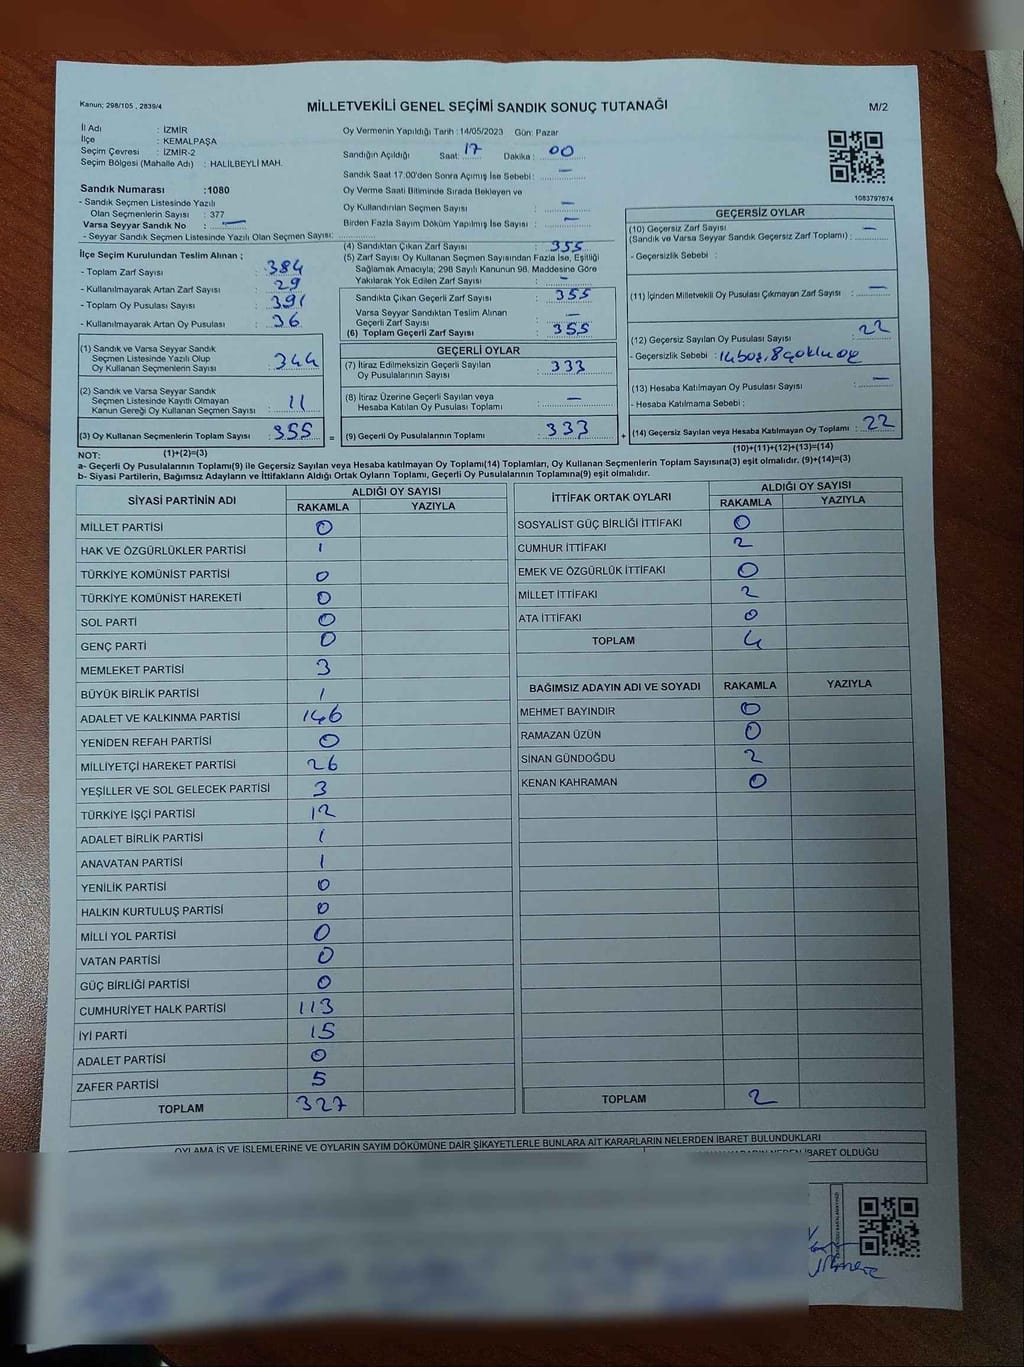 Kanun; 298/105 , 2839/4
MİLLETVEKİLİ GENEL SEÇİMİ SANDIK SONUÇ TUTANAĞI
M/2
İl Adı : İZMİR
İlçe : KEMALPAŞA
Seçim Çevresi : İZMİR-2
Seçim Bölgesi (Mahalle Adı) : HALİLBEYLİ MAH.
Sandık Numarası :1080
- Sandık Seçmen Listesinde Yazılı
Olan Seçmenlerin Sayısı : 377
Varsa Seyyar Sandık No : —
- Seyyar Sandık Seçmen Listesinde Yazılı Olan Seçmen Sayısı:
Oy Vermenin Yapıldığı Tarih : 14/05/2023 Gün: Pazar
Sandığın Açıldığı Saat: 17 Dakika : 00
Sandık Saat 17:00'den Sonra Açımış İse Sebebi: —
Oy Verme Saati Bitiminde Sırada Bekleyen ve
Oy Kullandırılan Seçmen Sayısı : —
Birden Fazla Sayım Döküm Yapılmış İse Sayısı : —
1083797674
İlçe Seçim Kurulundan Teslim Alınan ;
- Toplam Zarf Sayısı : 384
- Kullanılmayarak Artan Zarf Sayısı : 29
- Toplam Oy Pusulası Sayısı : 391
- Kullanılmayarak Artan Oy Pusulası : 36
(1) Sandık ve Varsa Seyyar Sandık
Seçmen Listesinde Yazılı Olup
Oy Kullanan Seçmenlerin Sayısı : 344
(2) Sandık ve Varsa Seyyar Sandık
Seçmen Listesinde Kayıtlı Olmayan
Kanun Gereği Oy Kullanan Seçmen Sayısı : 11
(3) Oy Kullanan Seçmenlerin Toplam Sayısı : 355
(4) Sandıktan Çıkan Zarf Sayısı : 355
(5) Zarf Sayısı Oy Kullanan Seçmen Sayısından Fazla İse, Eşitliği
Sağlamak Amacıyla; 298 Sayılı Kanunun 98. Maddesine Göre
Yakılarak Yok Edilen Zarf Sayısı : —
Sandıkta Çıkan Geçerli Zarf Sayısı : 355
Varsa Seyyar Sandıktan Teslim Alınan
Geçerli Zarf Sayısı : —
(6) Toplam Geçerli Zarf Sayısı : 355
GEÇERLİ OYLAR
(7) İtiraz Edilmeksizin Geçerli Sayılan
Oy Pusulalarının Sayısı : 333
(8) İtiraz Üzerine Geçerli Sayılan veya
Hesaba Katılan Oy Pusulası Toplamı : —
= (9) Geçerli Oy Pusulalarının Toplamı : 333 +
GEÇERSİZ OYLAR
(10) Geçersiz Zarf Sayısı
(Sandık ve Varsa Seyyar Sandık Geçersiz Zarf Toplamı) : —
- Geçersizlik Sebebi :
(11) İçinden Milletvekili Oy Pusulası Çıkmayan Zarf Sayısı : —
(12) Geçersiz Sayılan Oy Pusulası Sayısı : 22
- Geçersizlik Sebebi : 14 boş, 8 çoklu oy
(13) Hesaba Katılmayan Oy Pusulası Sayısı : —
- Hesaba Katılmama Sebebi :
(14) Geçersiz Sayılan veya Hesaba Katılmayan Oy Toplamı : 22
NOT: (1)+(2)=(3)
(10)+(11)+(12)+(13)=(14)
a- Geçerli Oy Pusulalarının Toplamı(9) ile Geçersiz Sayılan veya Hesaba katılmayan Oy Toplamı(14) Toplamları, Oy Kullanan Seçmenlerin Toplam Sayısına(3) eşit olmalıdır. (9)+(14)=(3)
b- Siyasi Partilerin, Bağımsız Adayların ve İttifakların Aldığı Ortak Oyların Toplamı, Geçerli Oy Pusulalarının Toplamına(9) eşit olmalıdır.
SİYASİ PARTİNİN ADI
ALDIĞI OY SAYISI
RAKAMLA YAZIYLA
MİLLET PARTİSİ 0
HAK VE ÖZGÜRLÜKLER PARTİSİ 1
TÜRKİYE KOMÜNİST PARTİSİ 0
TÜRKİYE KOMÜNİST HAREKETİ 0
SOL PARTİ 0
GENÇ PARTİ 0
MEMLEKET PARTİSİ 3
BÜYÜK BİRLİK PARTİSİ 1
ADALET VE KALKINMA PARTİSİ 146
YENİDEN REFAH PARTİSİ 0
MİLLİYETÇİ HAREKET PARTİSİ 26
YEŞİLLER VE SOL GELECEK PARTİSİ 3
TÜRKİYE İŞÇİ PARTİSİ 12
ADALET BİRLİK PARTİSİ 1
ANAVATAN PARTİSİ 1
YENİLİK PARTİSİ 0
HALKIN KURTULUŞ PARTİSİ 0
MİLLİ YOL PARTİSİ 0
VATAN PARTİSİ 0
GÜÇ BİRLİĞİ PARTİSİ 0
CUMHURİYET HALK PARTİSİ 113
İYİ PARTİ 15
ADALET PARTİSİ 0
ZAFER PARTİSİ 5
TOPLAM 327
İTTİFAK ORTAK OYLARI
ALDIĞI OY SAYISI
RAKAMLA YAZIYLA
SOSYALİST GÜÇ BİRLİĞİ İTTİFAKI 0
CUMHUR İTTİFAKI 2
EMEK VE ÖZGÜRLÜK İTTİFAKI 0
MİLLET İTTİFAKI 2
ATA İTTİFAKI 0
TOPLAM 4
BAĞIMSIZ ADAYIN ADI VE SOYADI RAKAMLA YAZIYLA
MEHMET BAYINDIR 0
RAMAZAN ÜZÜN 0
SİNAN GÜNDOĞDU 2
KENAN KAHRAMAN 0
TOPLAM 2
OYLAMA İŞ VE İŞLEMLERİNE VE OYLARIN SAYIM DÖKÜMÜNE DAİR ŞİKAYETLERLE BUNLARA AİT KARARLARIN NELERDEN İBARET BULUNDUKLARI
NEDEN İBARET OLDUĞU